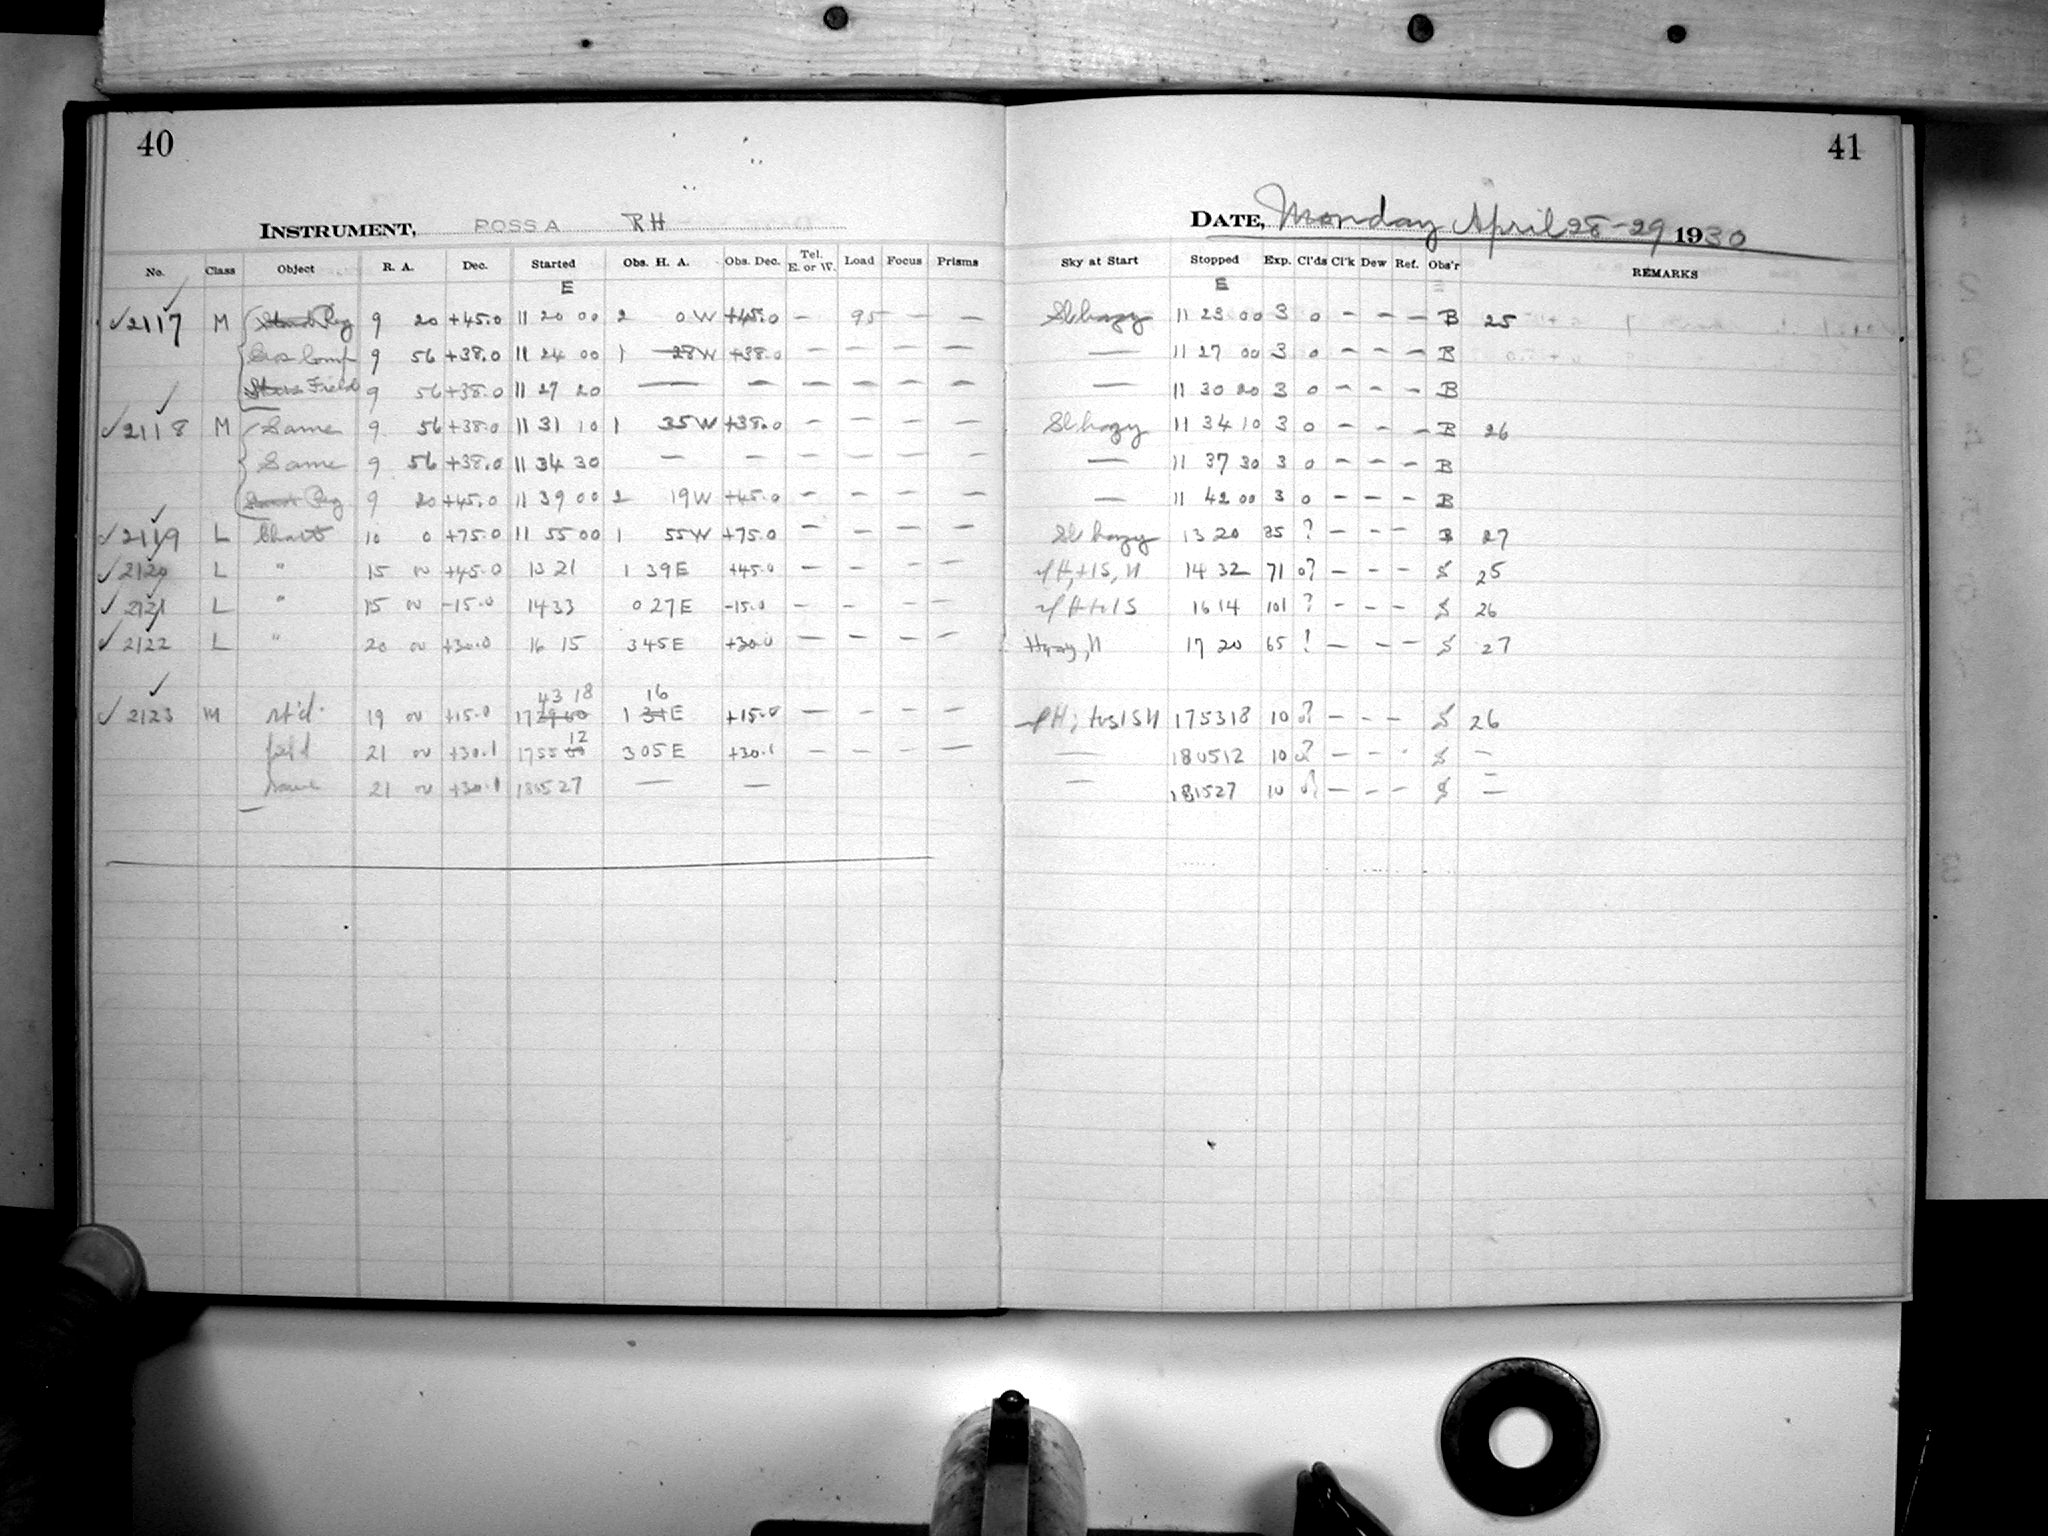 40
INSTRUMENT, ROSS A RH
No. Class Object R. A. Dec. Started Obs. H. A. Obs. Dec. Tel. E. or W. Load Focus Prisms
E
✓2117 M Reg 9 20 +45.0 11 20 00 2 0W +45.0 — 95 — —
Comp 9 56 +38.0 11 24 00 1 28W +38.0 — — — —
Field 9 56 +38.0 11 27 20 — — — — — —
✓2118 M Same 9 56 +38.0 11 31 10 1 35W +38.0 — — — —
Same 9 56 +38.0 11 34 30 — — — — — —
Reg 9 20 +45.0 11 39 00 2 19W +45.0 — — — —
✓2119 L Chart 10 0 +75.0 11 55 00 1 55W +75.0 — — — —
✓2120 L " 15 00 +45.0 13 21 1 39E +45.0 — — — —
✓2121 L " 15 00 -15.0 14 33 0 27E -15.0 — — — —
✓2122 L " 20 00 +30.0 16 15 3 45E +30.0 — — — —
43 18 16
✓2123 M st'd. 19 00 +15.0 17 29 00 1 31E +15.0 — — — —
12
feld 21 00 +30.1 17 55 00 3 05E +30.1 — — — —
same 21 00 +30.1 18 05 27 — —
41
DATE, Monday April 28-29 1930
Sky at Start Stopped Exp. Cl'ds Cl'k Dew Ref. Obs'r REMARKS
E
Sl hazy 11 23 00 3 0 — — — B 25
— 11 27 00 3 0 — — — B
— 11 30 20 3 0 — — — B
Sl hazy 11 34 10 3 0 — — — B 26
— 11 37 30 3 0 — — — B
— 11 42 00 3 0 — — — B
Sl hazy 13 20 85 ? — — — B 27
14 32 71 0? — — — S 25
16 14 101 ? — — — S 26
Hazy, 17 20 65 ! — — — S 27
17 53 18 10 0? — — — S 26
— 18 05 12 10 0? — — S —
— 18 15 27 10 0? — — — S —